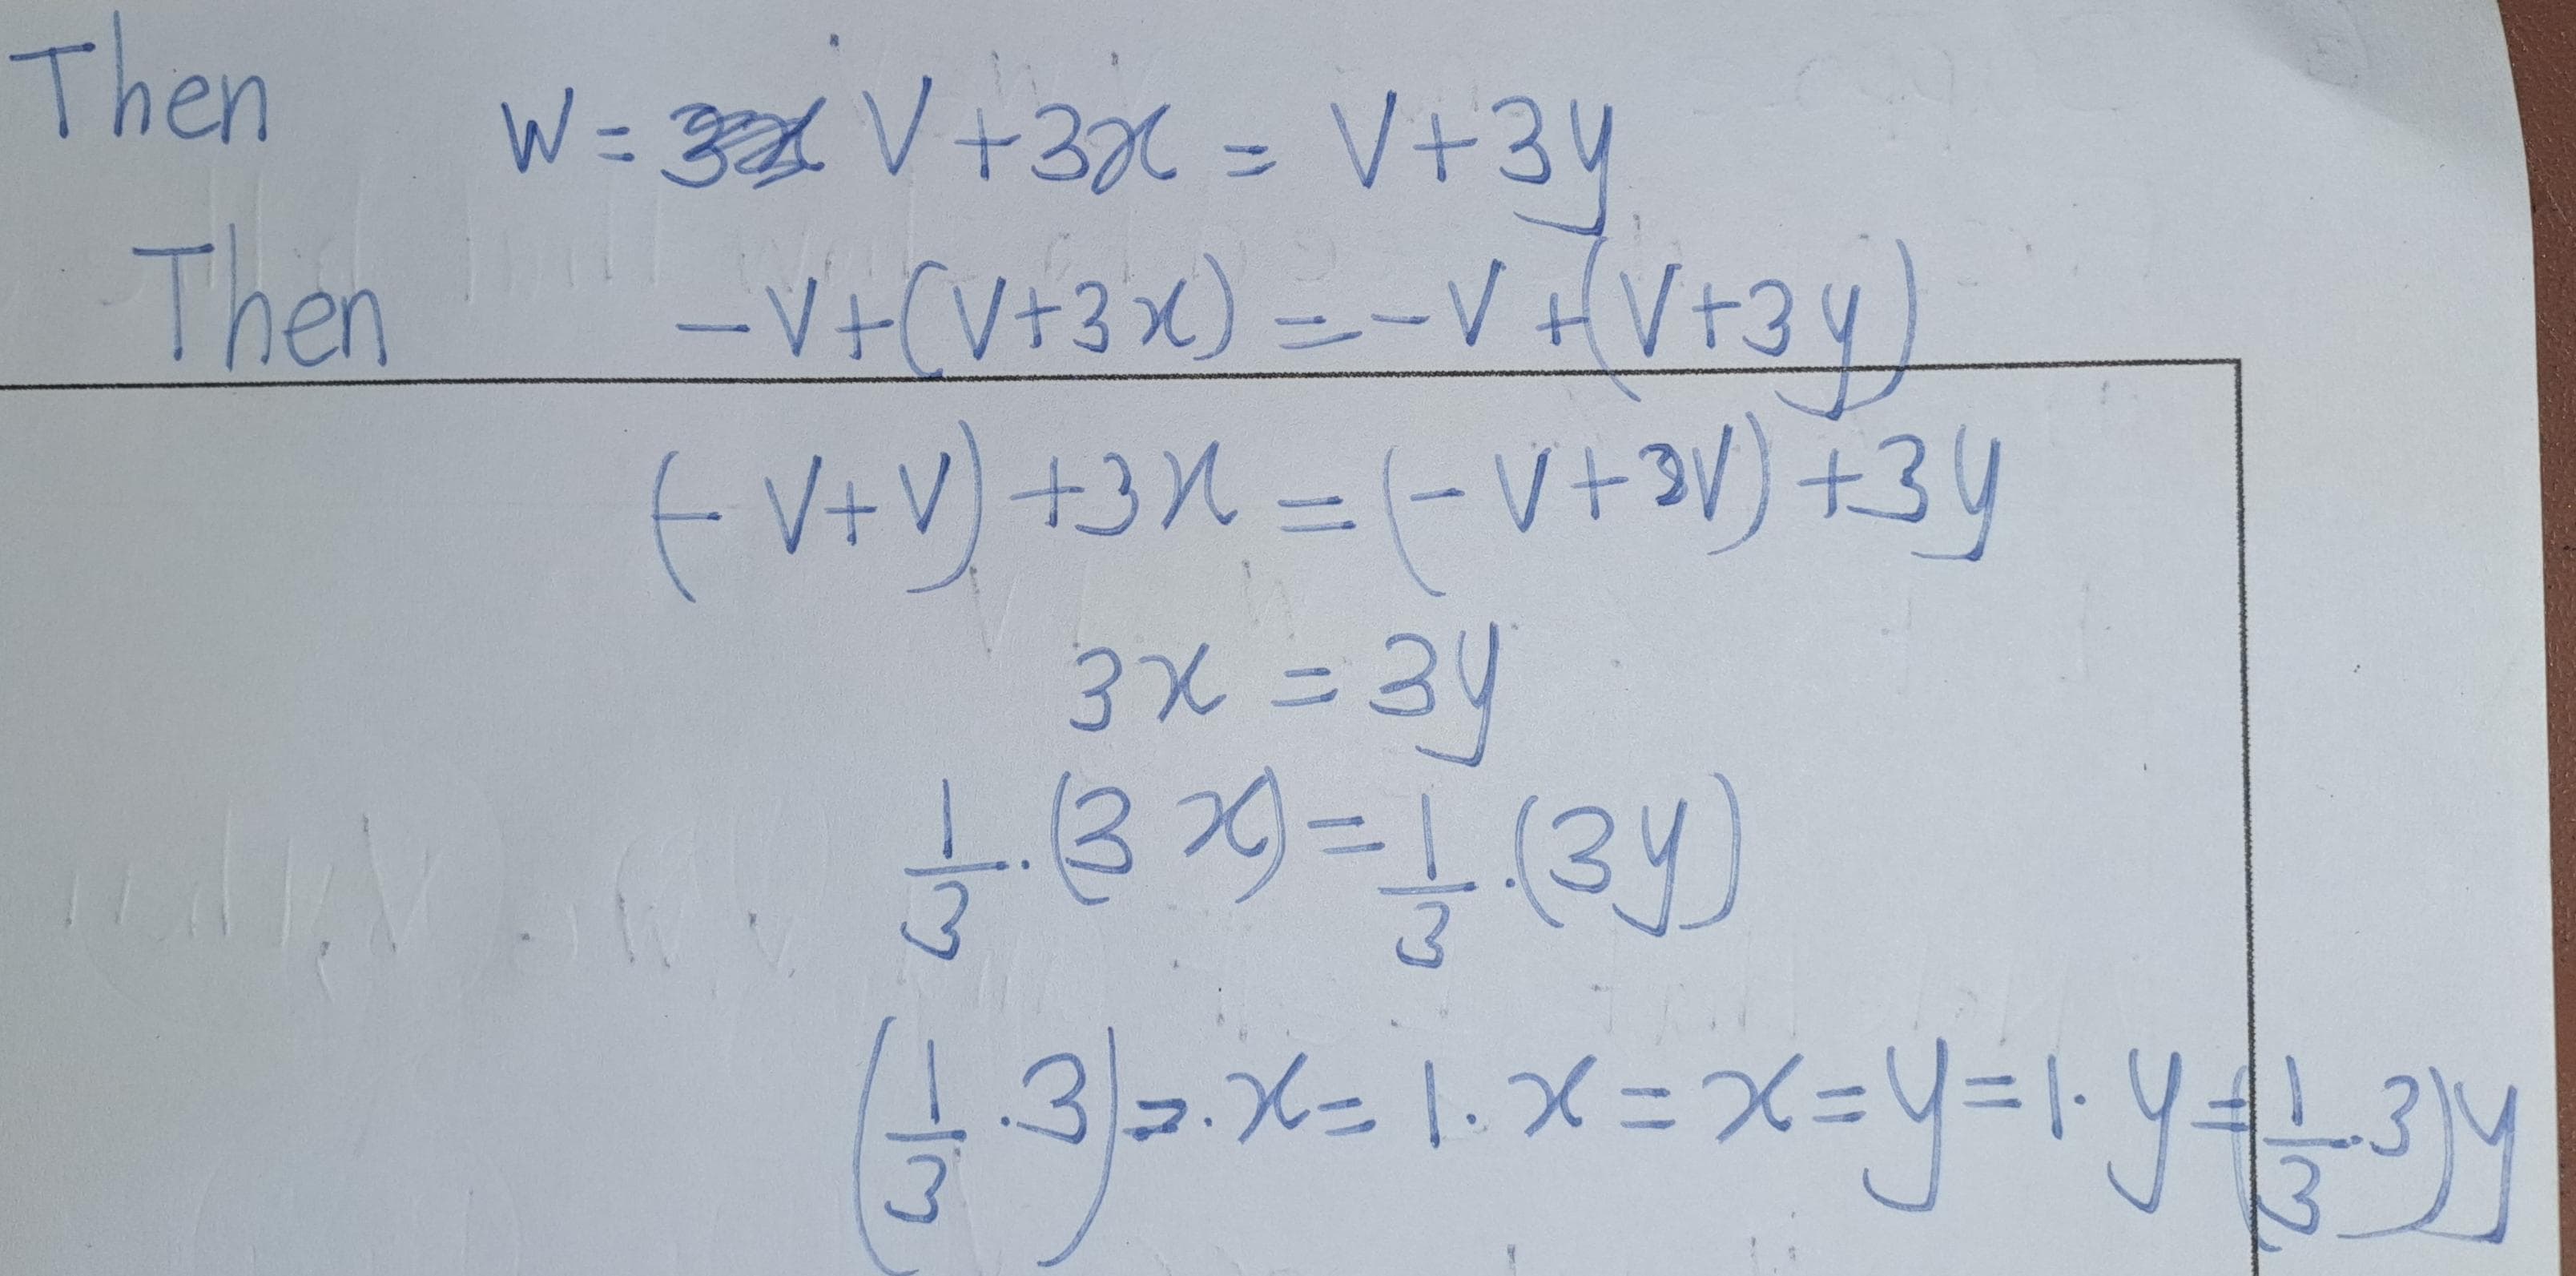 Then w = v + 3x = v + 3y
Then -v + (v + 3x) = -v + (v + 3y)
(-v + v) + 3x = (-v + v) + 3y
3x = 3y
1/3 · (3x) = 1/3 · (3y)
(1/3 · 3) · x = 1 · x = x = y = 1 · y = (1/3 · 3)y